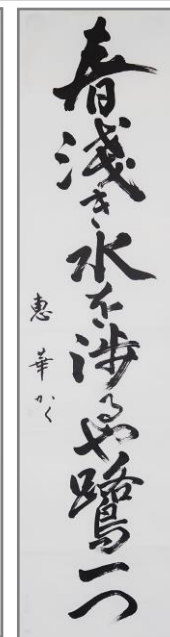 春浅き水を渉るや鷺一つ
惠華かく